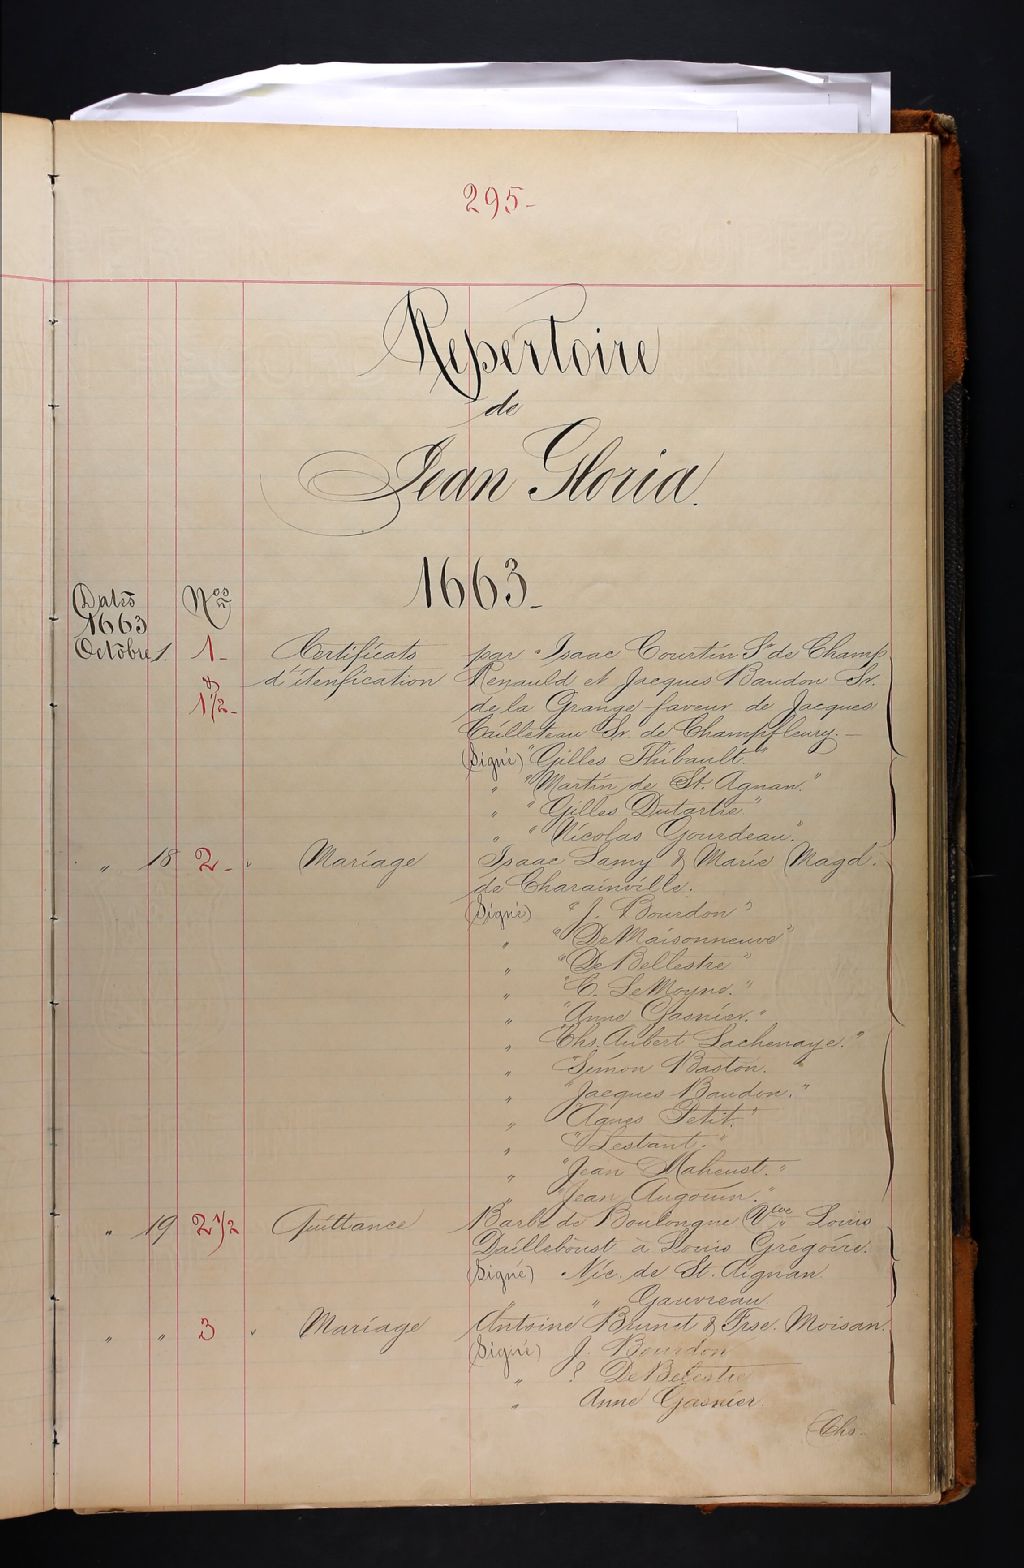 295-
Repertoire
de
Jean Gloria.
1663-
Dates Nos
1663
Octobre 1 1- Certificats par Isaac Courtin Sr de Champ
& d'itenfication Renauld et Jacques Baudon Sr.
1 1/2- de la Grange faveur de Jacques
Cailleteau Sr. de Champfleury.-
(Signé) "Gilles Thibault"
" "Martin de St. Agnan."
" "Gilles Dutartre"
" "Nicolas Gourdeau."
" 18 2- " Mariage Isaac Lamy & Marie Magd.
de Charainville.
(Signé) "J. Bourdon"
" "De Maisonneuve"
" "De Bellestre"
" "C. LeMoyne."
" "Anne Gasnier."
" Chs. Aubert Lachenaye."
" Simon Baston. "
" "Jacques Baudon."
" Agnes Petit."
" Lestant."
" "Jean Maheust."
" Jean Augouin."
" 19 2 1/2 Quittance Barbe de Boulongne Vve Louis
Daillebòust à Louis Grégoire.
(Signé) Nic. de St. Aignan
" Gauvreau
" " 3 " Mariage Antoine Brunet & Frse. Moisan.
(Signé) J. Bourdon
" ? De Belestre
" Anne Gasnier
Chs.